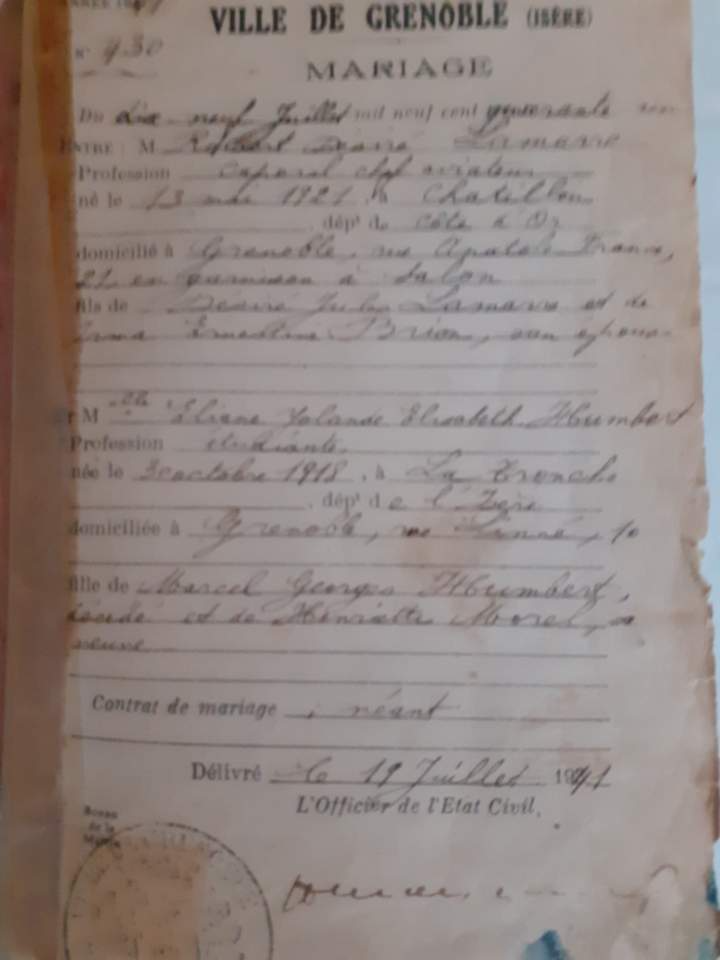 VILLE DE GRENOBLE (ISÈRE)
N° 430
MARIAGE
Du dix neuf Juillet mil neuf cent quarante un
ENTRE : M Robert Desiré Lamarre
Profession caporal chef aviateur
né le 13 mai 1921, à Chatillon
dépt de Côte d'Or
domicilié à Grenoble, rue Anatole France,
21 en garnison à Salon
fils de Desiré Jules Lamarre et de
Irma Ernestine Brion, son épouse
M elle Eliane Yolande Elisabeth Humbert
Profession étudiante
née le 3 octobre 1918, à La Tronche
, dépt de l'Isère
domiciliée à Grenoble, rue Linné, 10
fille de Marcel Georges Humbert,
décédé et de Henriette Morel, sa
veuve
Contrat de mariage : néant
Délivré le 19 Juillet 1941
L'Officier de l'Etat Civil,